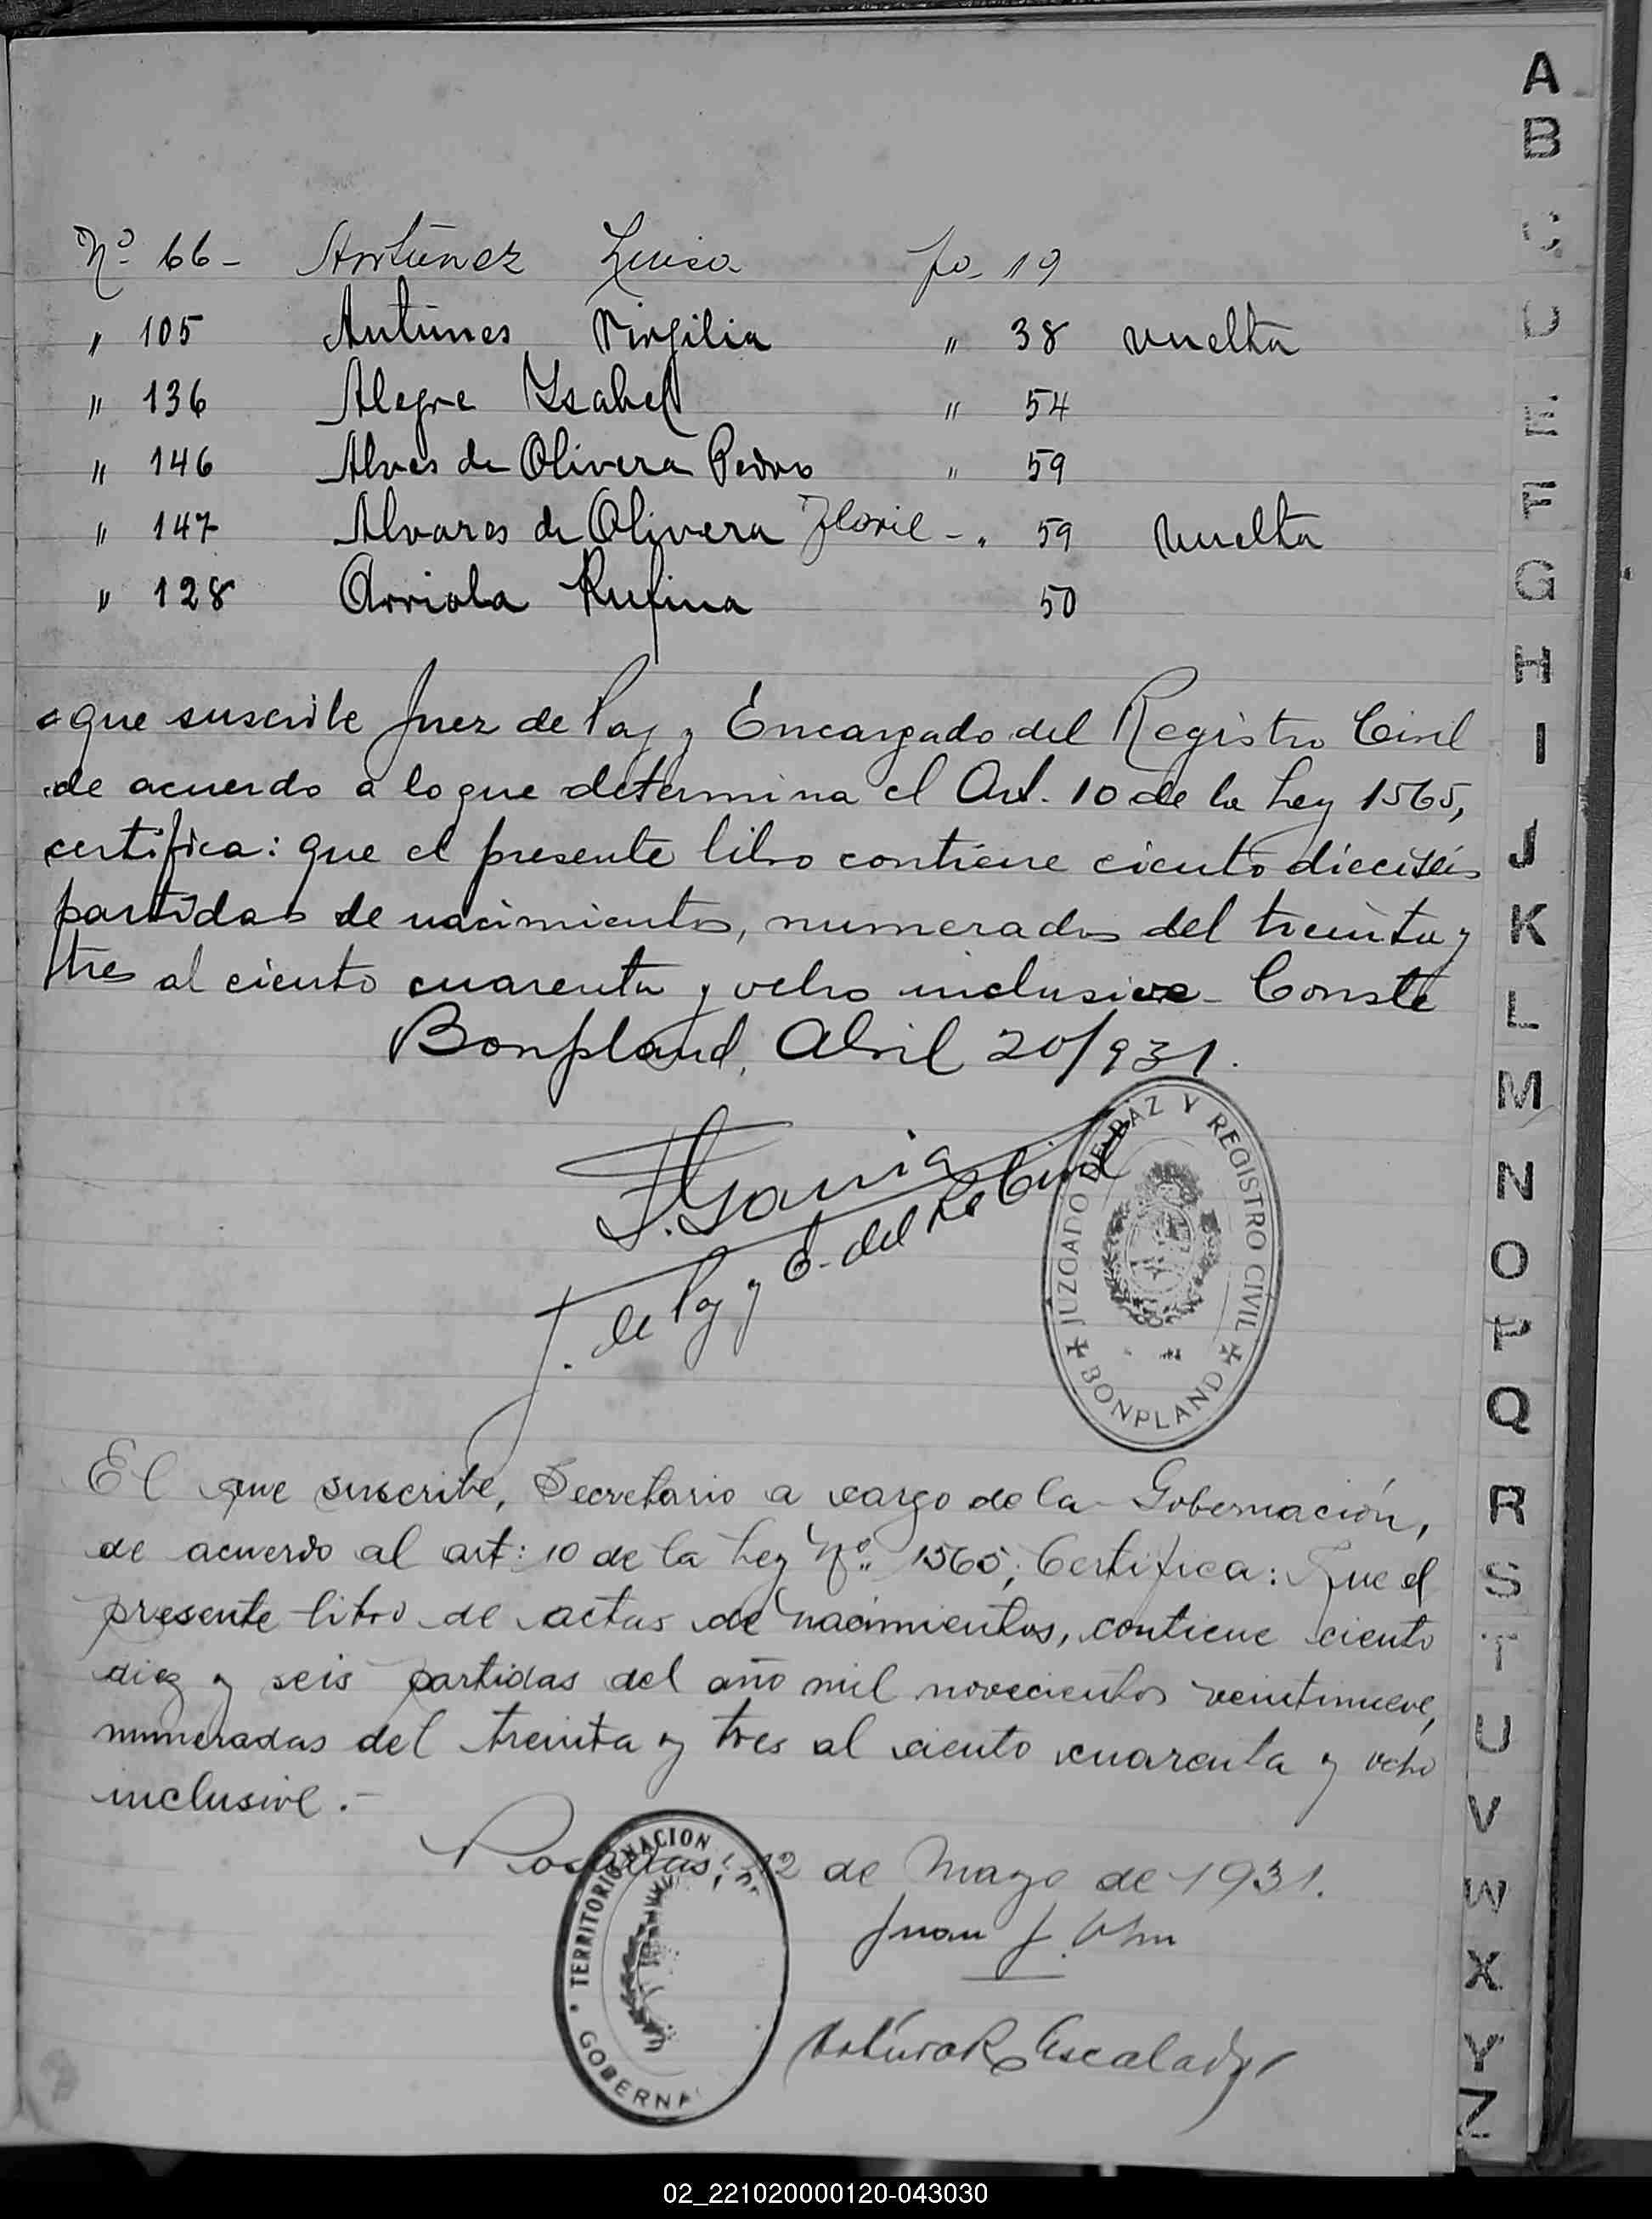 Nº 66 - Antúnez Luisa fo. 19
" 105 Antúnes Virgilia " 38 vuelta
" 136 Alegre Ysabel " 54
" 146 Alves de Olivera Pedro " 59
" 147 Alvares de Olivera - " 59 vuelta
" 128 Arriola Rufina 50
que suscribe Juez de Paz y Encargado del Registro Civil
de acuerdo a lo que determina el Art. 10 de la Ley 1565,
certifica: que el presente libro contiene ciento dieciseis
partidas de nacimientos, numeradas del treinta y
tres al ciento cuarenta y ocho inclusive - Conste
Bonpland, Abril 20/931.
J. de Paz y E. del Re Civil
JUZGADO DE PAZ Y REGISTRO CIVIL
BONPLAND
El que suscribe, Secretario a cargo de la Gobernación,
de acuerdo al art: 10 de la Ley Nº 1565; Certifica: Que el
presente libro de actas de nacimientos, contiene ciento
diez y seis partidas del año mil novecientos veintinueve,
numeradas del treinta y tres al ciento cuarenta y ocho
inclusive.-
Posadas, 12 de Mayo de 1931.
Juan J.
Arturo R. Escalada
TERRITORIO NACION
GOBERNA
A
B
C
D
E
F
G
H
I
J
K
L
M
N
O
P
Q
R
S
T
U
V
W
X
Y
Z
02_221020000120-043030